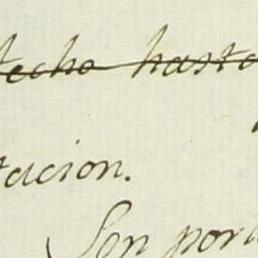 techo hasta
tacion.
Son por